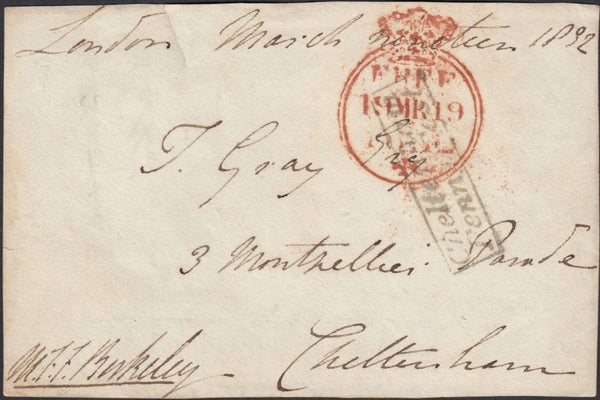 London March nineteen 1832
FREE
19 MR 19
1832
T. Gray Esq
3 Montpellier Parade
Cheltenham
Penny
M. F. F. Berkeley
Cheltenham